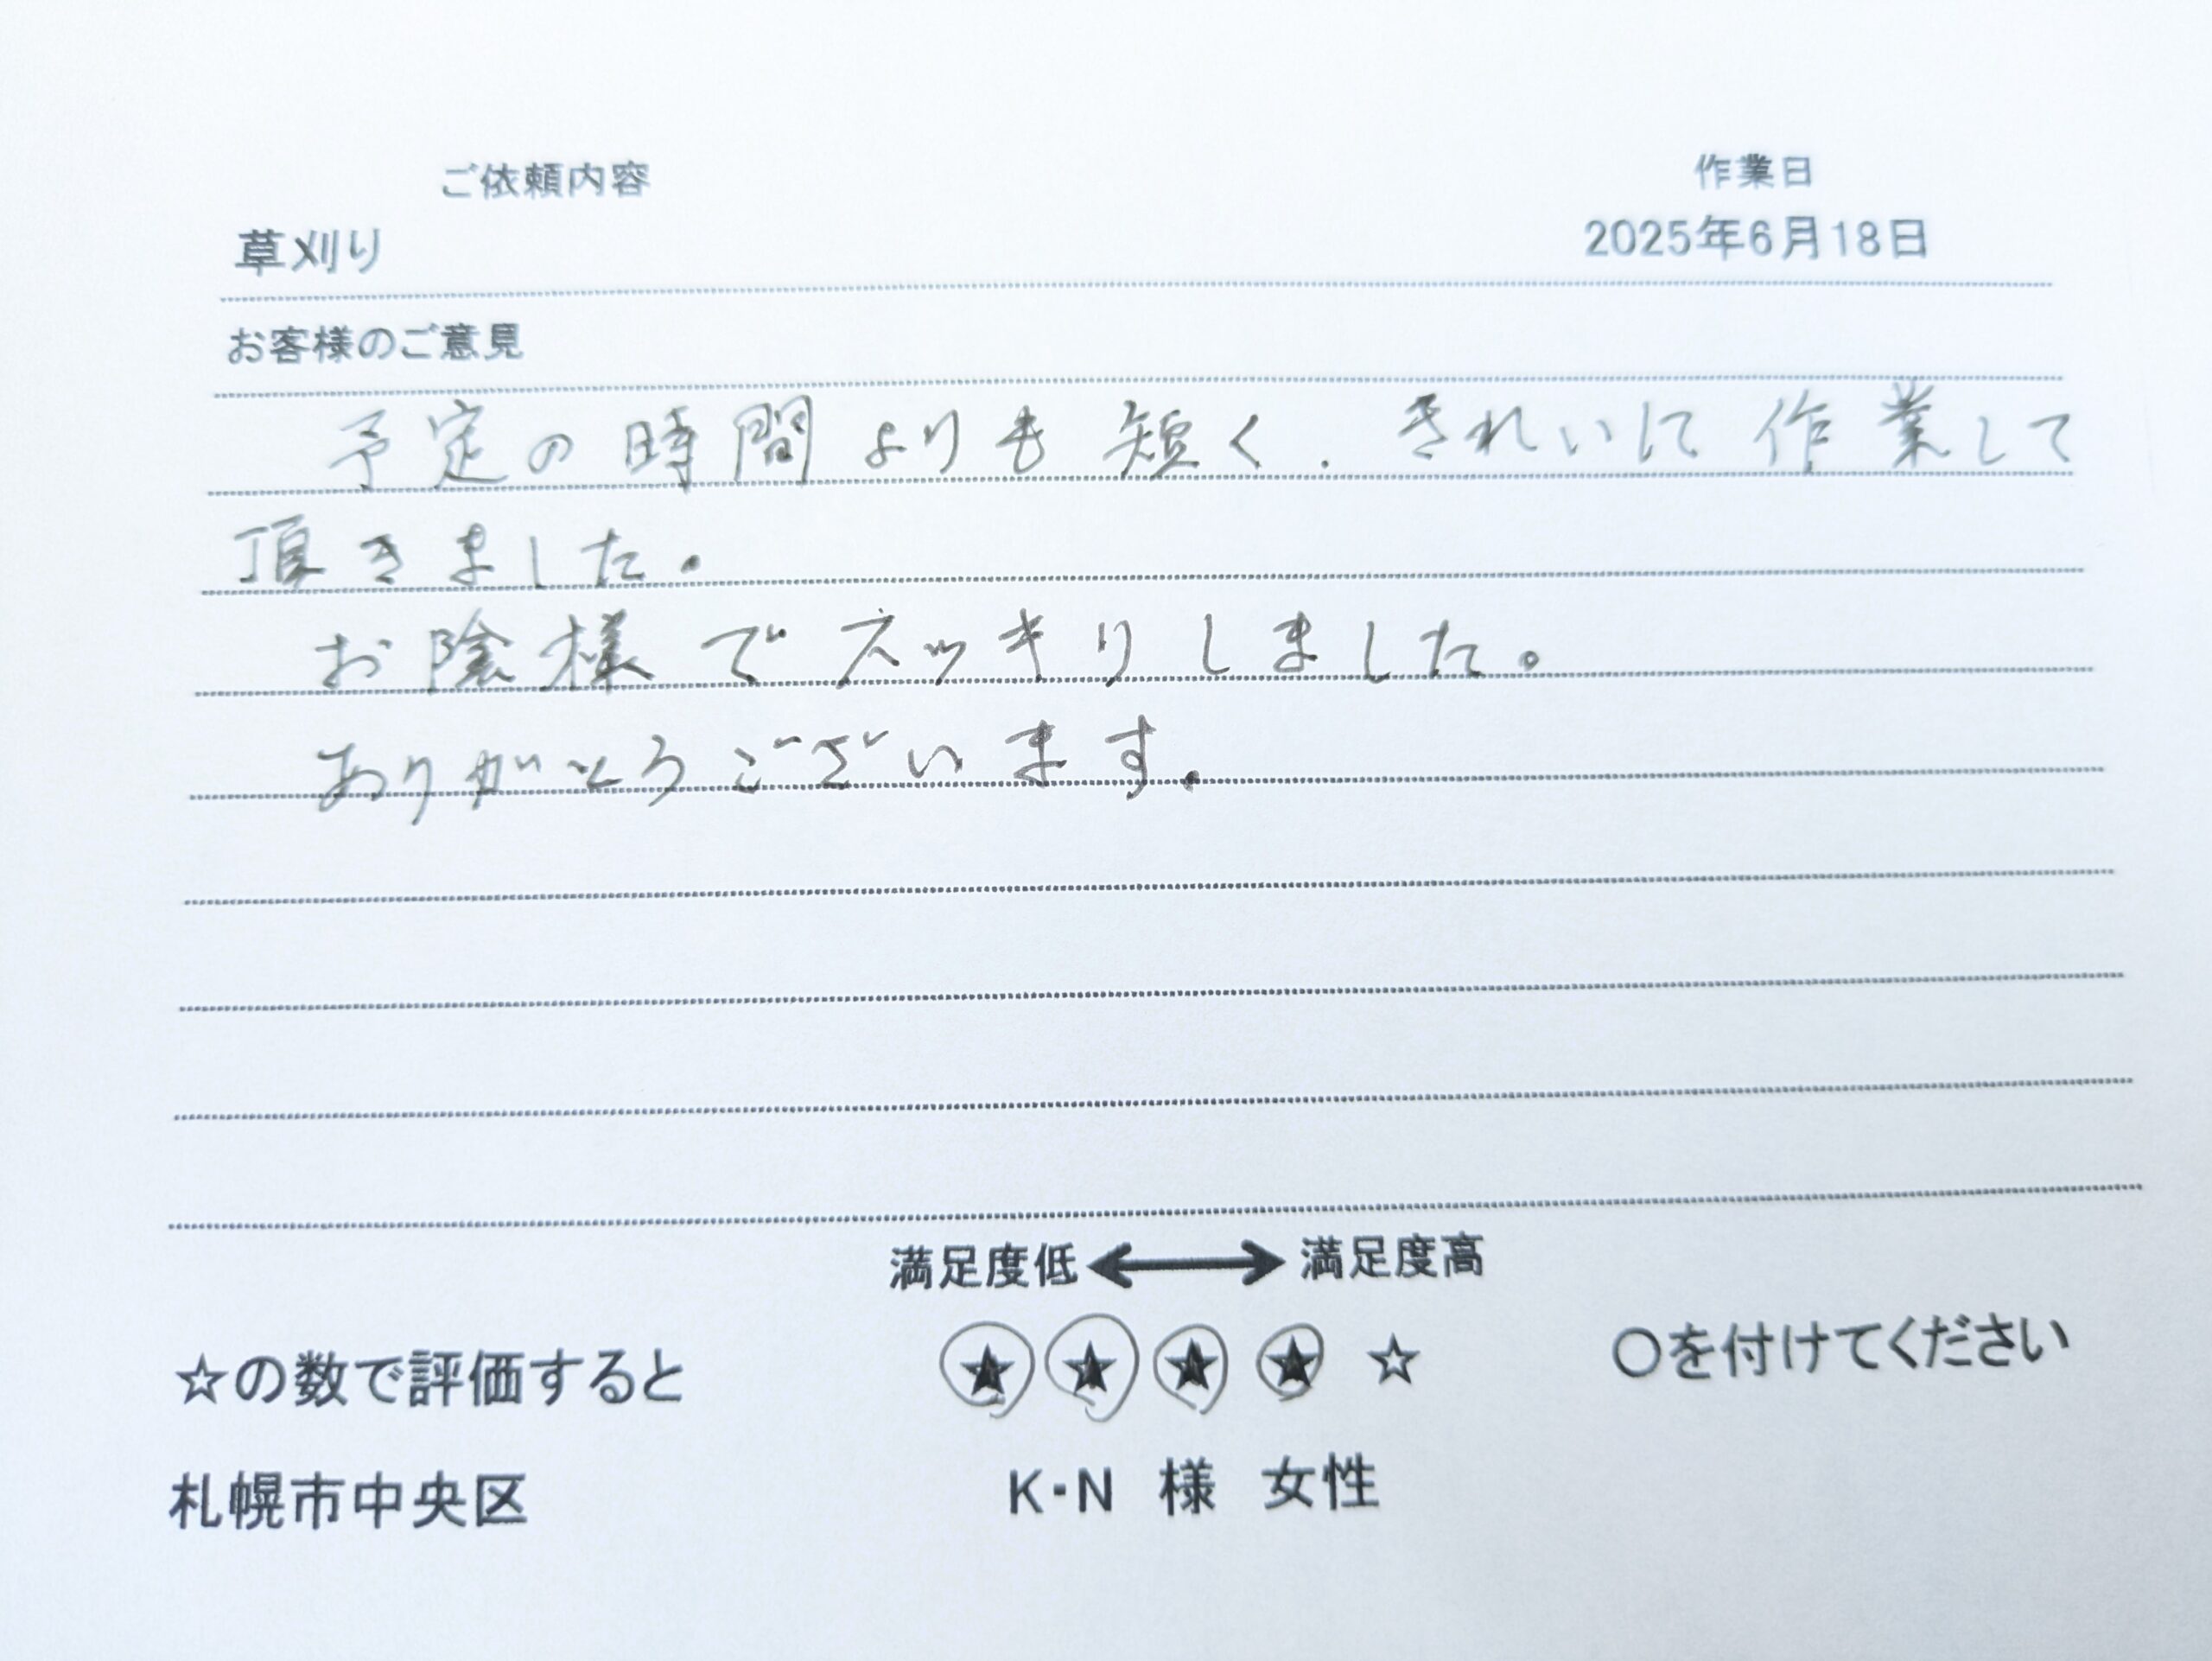 ご依頼内容 作業日
草刈り 2025年6月18日
お客様のご意見
予定の時間よりも短く．きれいに作業して
頂きました。
お陰様でスッキリしました。
ありがとうございます．
満足度低 ←→ 満足度高
☆の数で評価すると ★★★★☆ ○を付けてください
札幌市中央区 K・N 様 女性